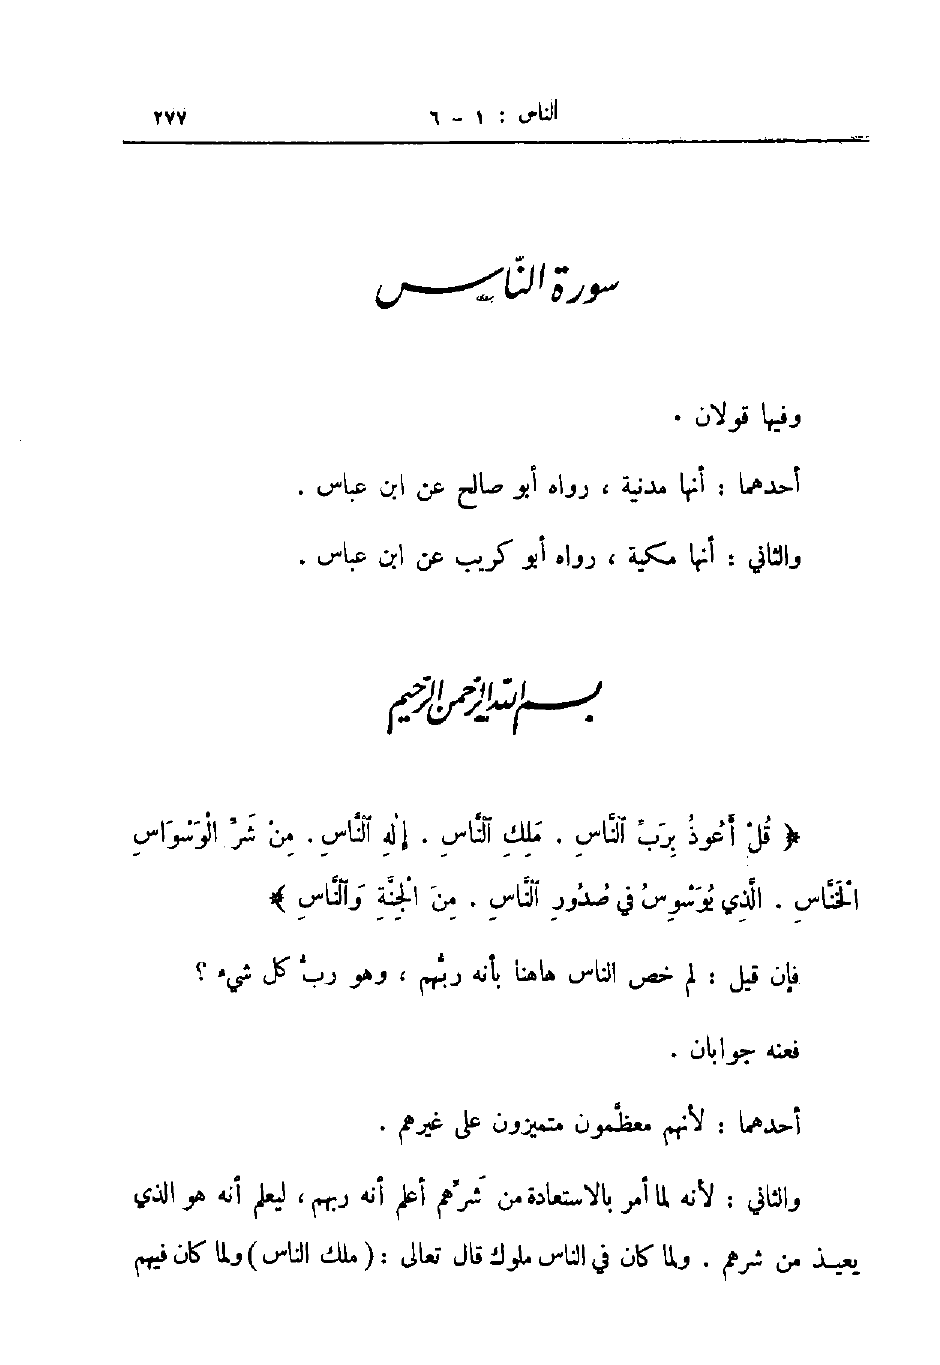 الناس : ١ - ٦ ٢٧٧
سورة النّاس
وفيها قولان .
أحدهما : أنها مدنية ، رواه أبو صالح عن ابن عباس .
والثاني : أنها مكية ، رواه أبو كريب عن ابن عباس .
بسم الله الرحمن الرحيم
﴿ قُلْ أَعُوذُ بِرَبِّ ٱلنَّاسِ . مَلِكِ ٱلنَّاسِ . إِلٰهِ ٱلنَّاسِ . مِنْ شَرِّ الْوَسْوَاسِ
الْخَنَّاسِ . الَّذِي يُوَسْوِسُ فِي صُدُورِ ٱلنَّاسِ . مِنَ الْجِنَّةِ وَٱلنَّاسِ ﴾
فإن قيل : لم خص الناس هاهنا بأنه ربُّهم ، وهو ربُّ كل شيء ؟
فعنه جوابان .
أحدهما : لأنهم معظَّمون متميزون على غيرهم .
والثاني : لأنه لما أمر بالاستعاذة من شَرِّهم أعلم أنه ربهم ، ليعلم أنه هو الذي
يعيذ من شرهم . ولما كان في الناس ملوك قال تعالى : ( ملك الناس ) ولما كان فيهم